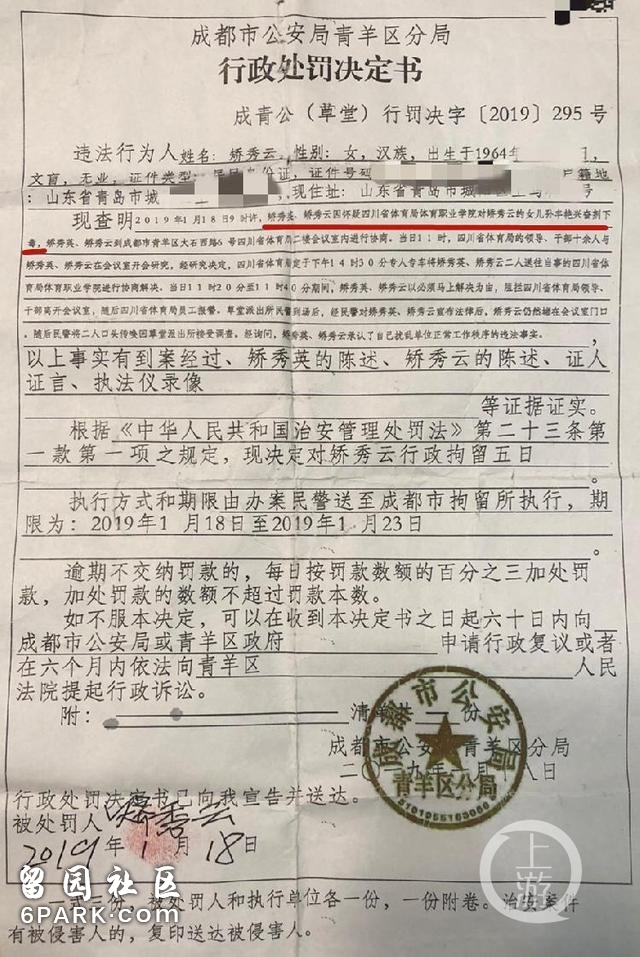 成都市公安局青羊区分局
行政处罚决定书
成青公（草堂）行罚决字〔2019〕295号
违法行为人姓名：矫秀云，性别：女，汉族，出生于1964年
文盲，无业，证件类型：居民身份证，证件号码 户籍地
：山东省青岛市城 现住址：山东省青岛市城
现查明2019年1月18日9时许，矫秀英、矫秀云因怀疑四川省体育局体育职业学院对矫秀云的女儿孙丰艳兴奋剂下
毒，矫秀英、矫秀云到成都市青羊区大石西路6号四川省体育局二楼会议室内进行协商。当日11时，四川省体育局的领导、干部十余人与
矫秀英、矫秀云在会议室开会研究，经研究决定，四川省体育局定于下午14时30分专人专车将矫秀英、矫秀云二人送往当事的四川省体
育局体育职业学院进行协商解决。当日11时20分至11时40分期间，矫秀英、矫秀云以必须马上解决为由，阻拦四川省体育局领导、
干部离开会议室，随后四川省体育局员工报警。草堂派出所民警到场后，经民警对矫秀英、矫秀云宣布法律后，矫秀云仍然堵在会议室门口
，随后民警将二人口头传唤回草堂派出所接受调查。经询问，矫秀英、矫秀云承认了自己扰乱单位正常工作秩序的违法事实。
以上事实有到案经过、矫秀英的陈述、矫秀云的陈述、证人
证言、执法仪录像
等证据证实。
根据《中华人民共和国治安管理处罚法》第二十三条第
一款第一项之规定，现决定对矫秀云行政拘留五日
。
执行方式和期限由办案民警送至成都市拘留所执行，期
限为：2019年1月18日至2019年1月23日
。
逾期不交纳罚款的，每日按罚款数额的百分之三加处罚
款，加处罚款的数额不超过罚款本数。
如不服本决定，可以在收到本决定书之日起六十日内向
成都市公安局或青羊区政府 申请行政复议或者
在六个月内依法向青羊区 人民
法院提起行政诉讼。
附： 清单共 份
成都市公安局青羊区分局
二〇一九年一月十八日
成都市公安局
青羊区分局
行政处罚决定书已向我宣告并送达。
被处罚人 矫秀云
2019年1月18日
上游
留园社区
6PARK.COM
一式三份，被处罚人和执行单位各一份，一份附卷。治安案件
有被侵害人的，复印送达被侵害人。